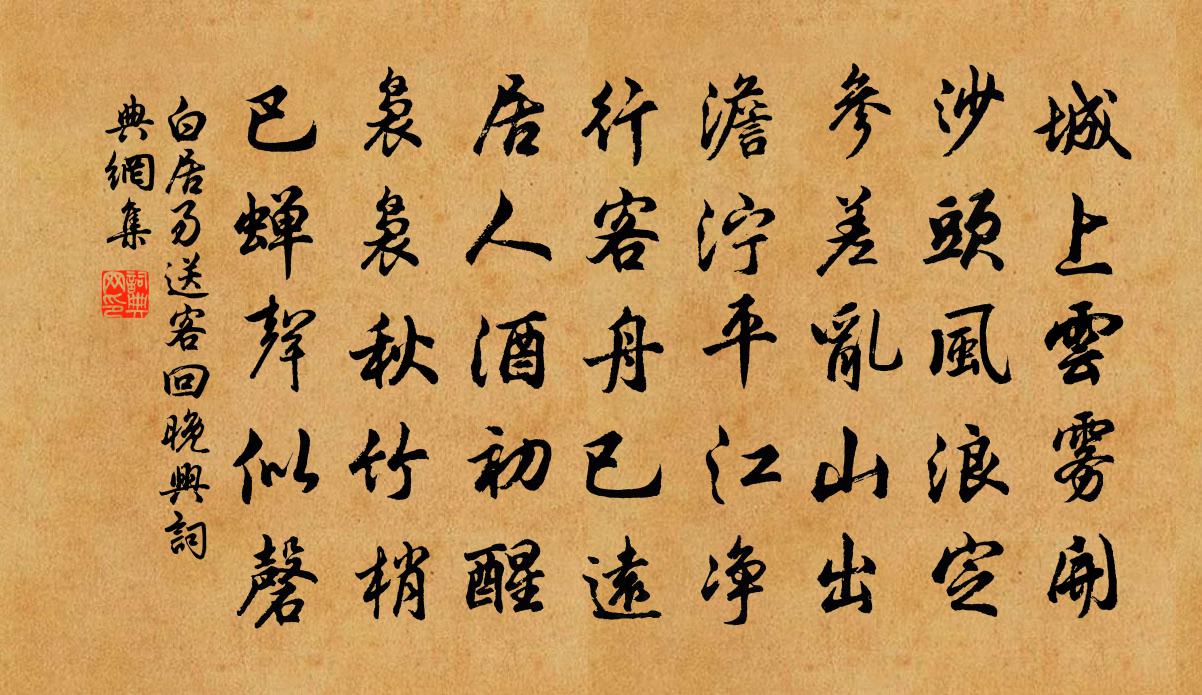 城上雲霧開
沙頭風浪定
參差亂山出
澹泞平江净
行客舟已遠
居人酒初醒
裊裊秋竹梢
巴蟬聲似磬
白居易送客回晚興詞
典網集
詞典
网印